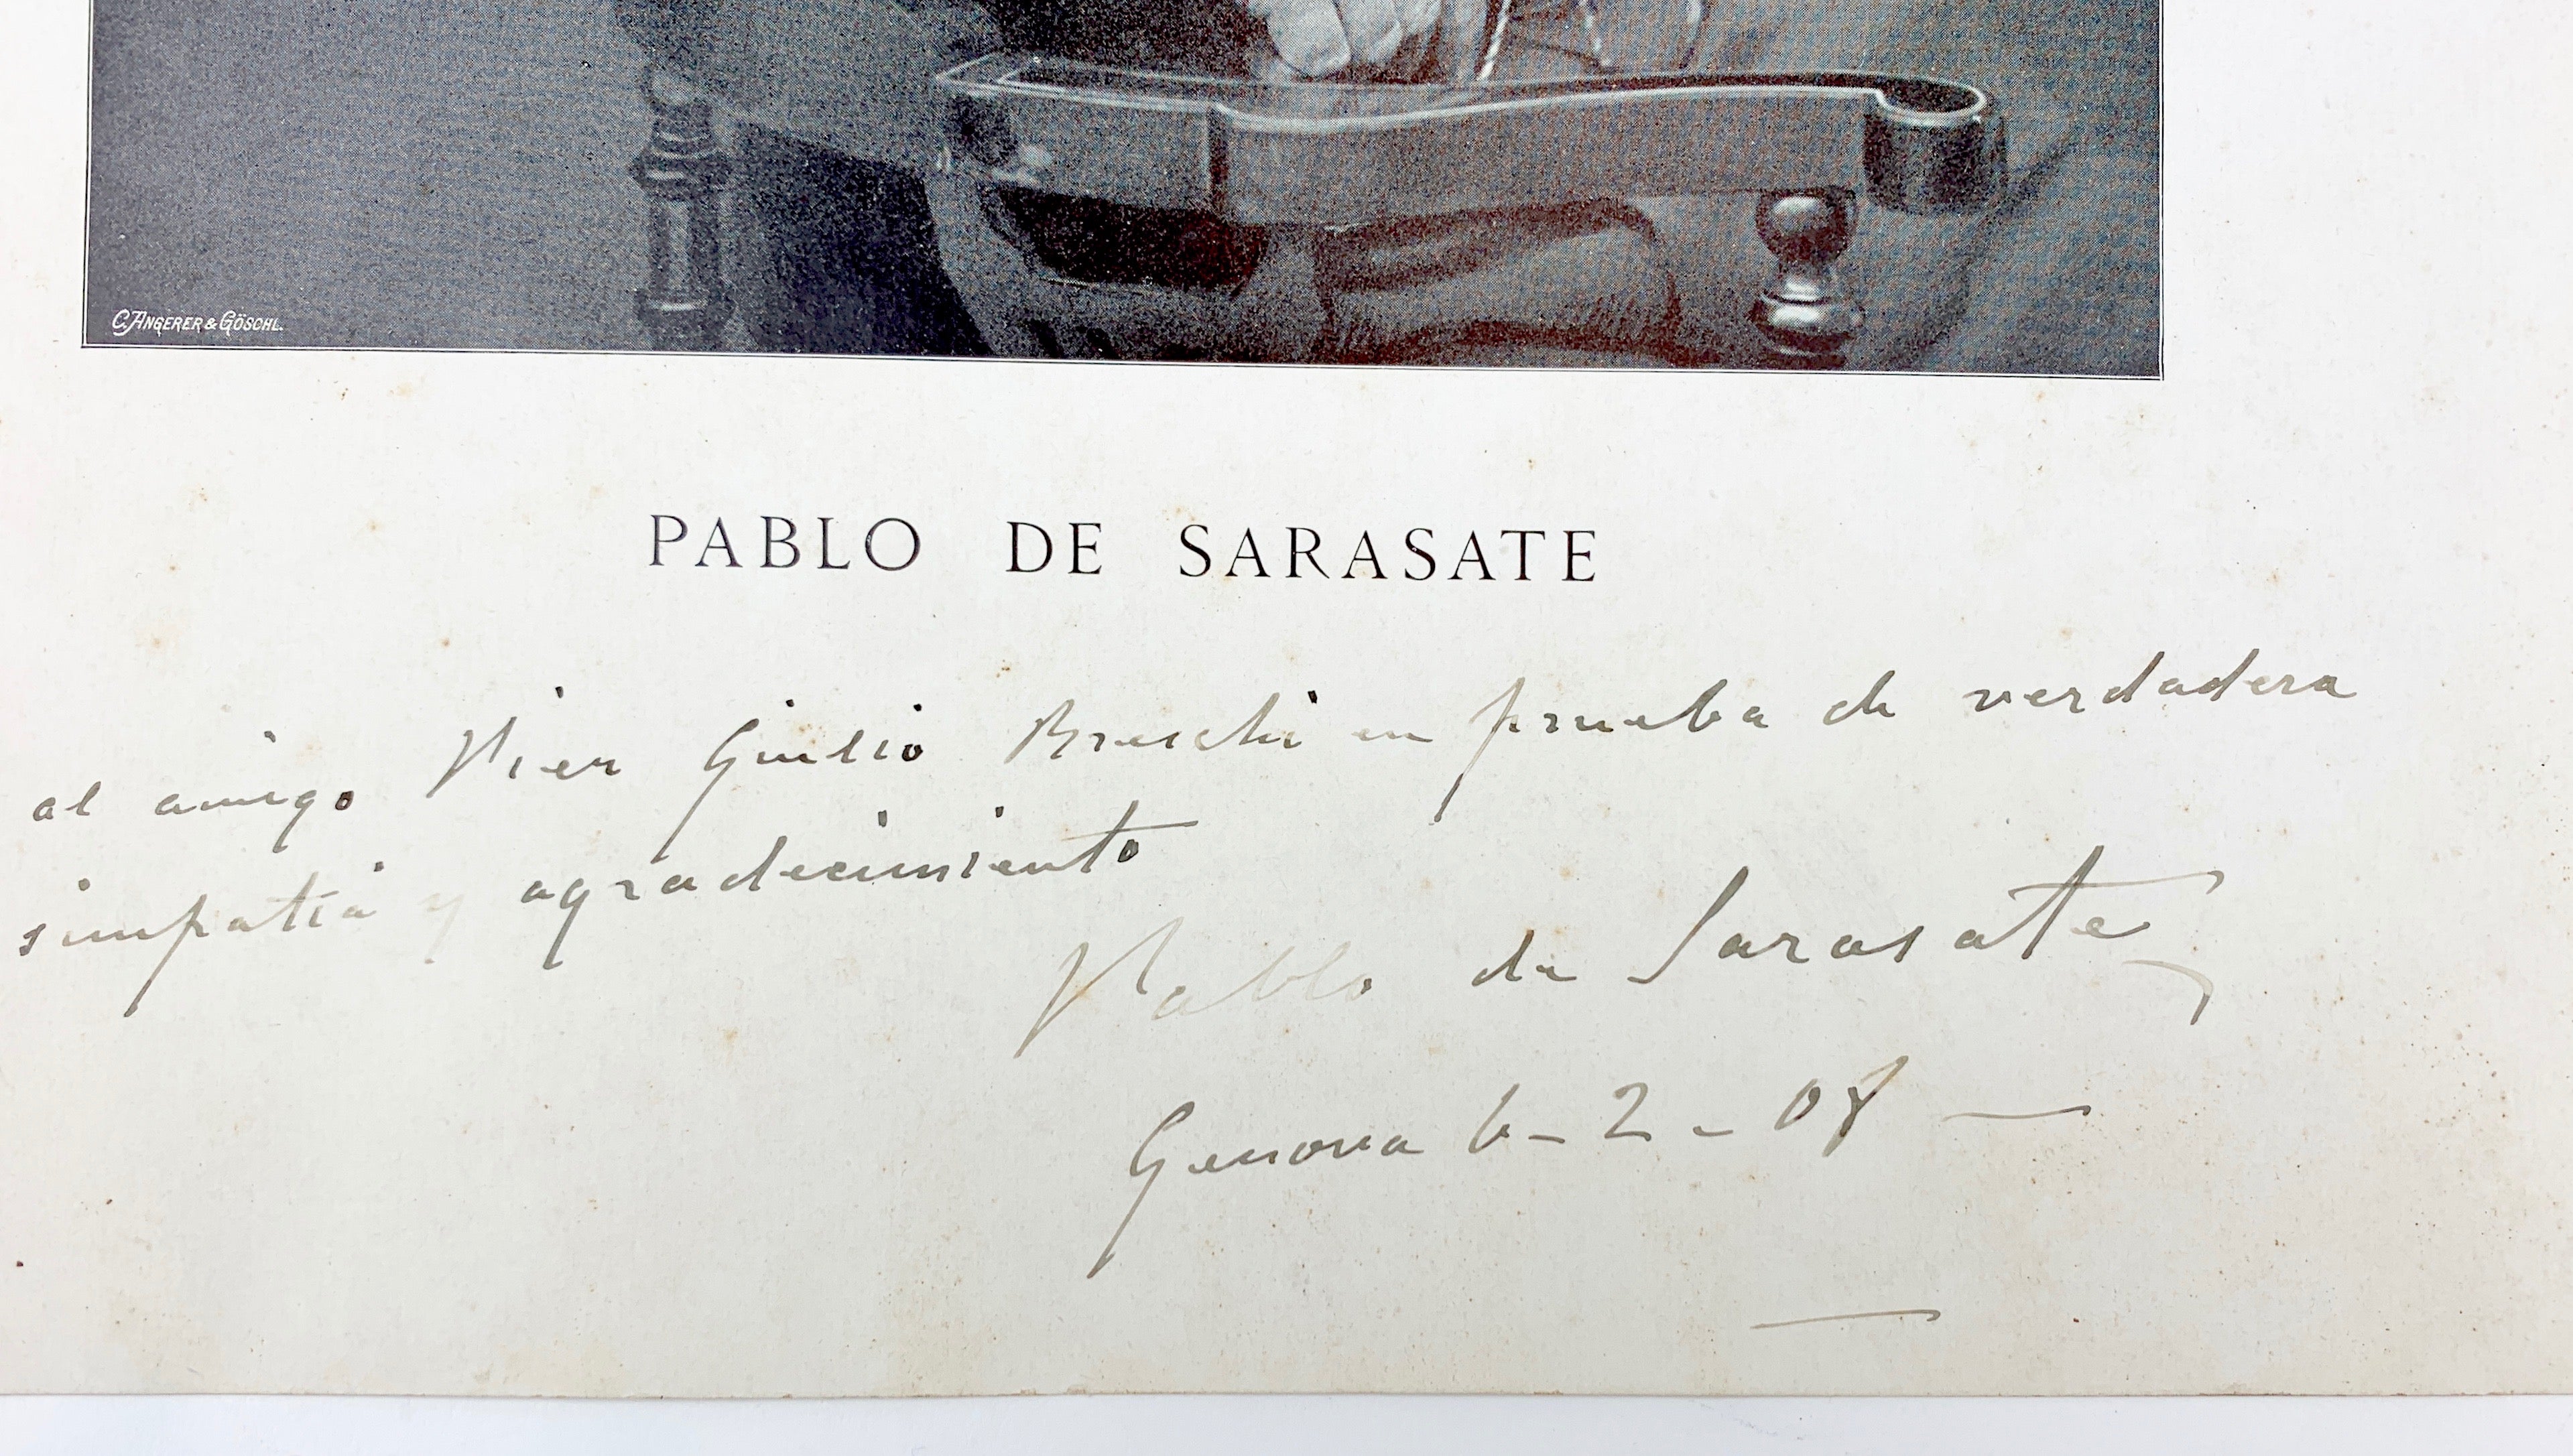 C. ANGERER & GÖSCHL.
PABLO DE SARASATE
al amigo Pier Giulio Breschi en prueba de verdadera
simpatia y agradecimiento
Pablo de Sarasate
Genova 6-2-08 —